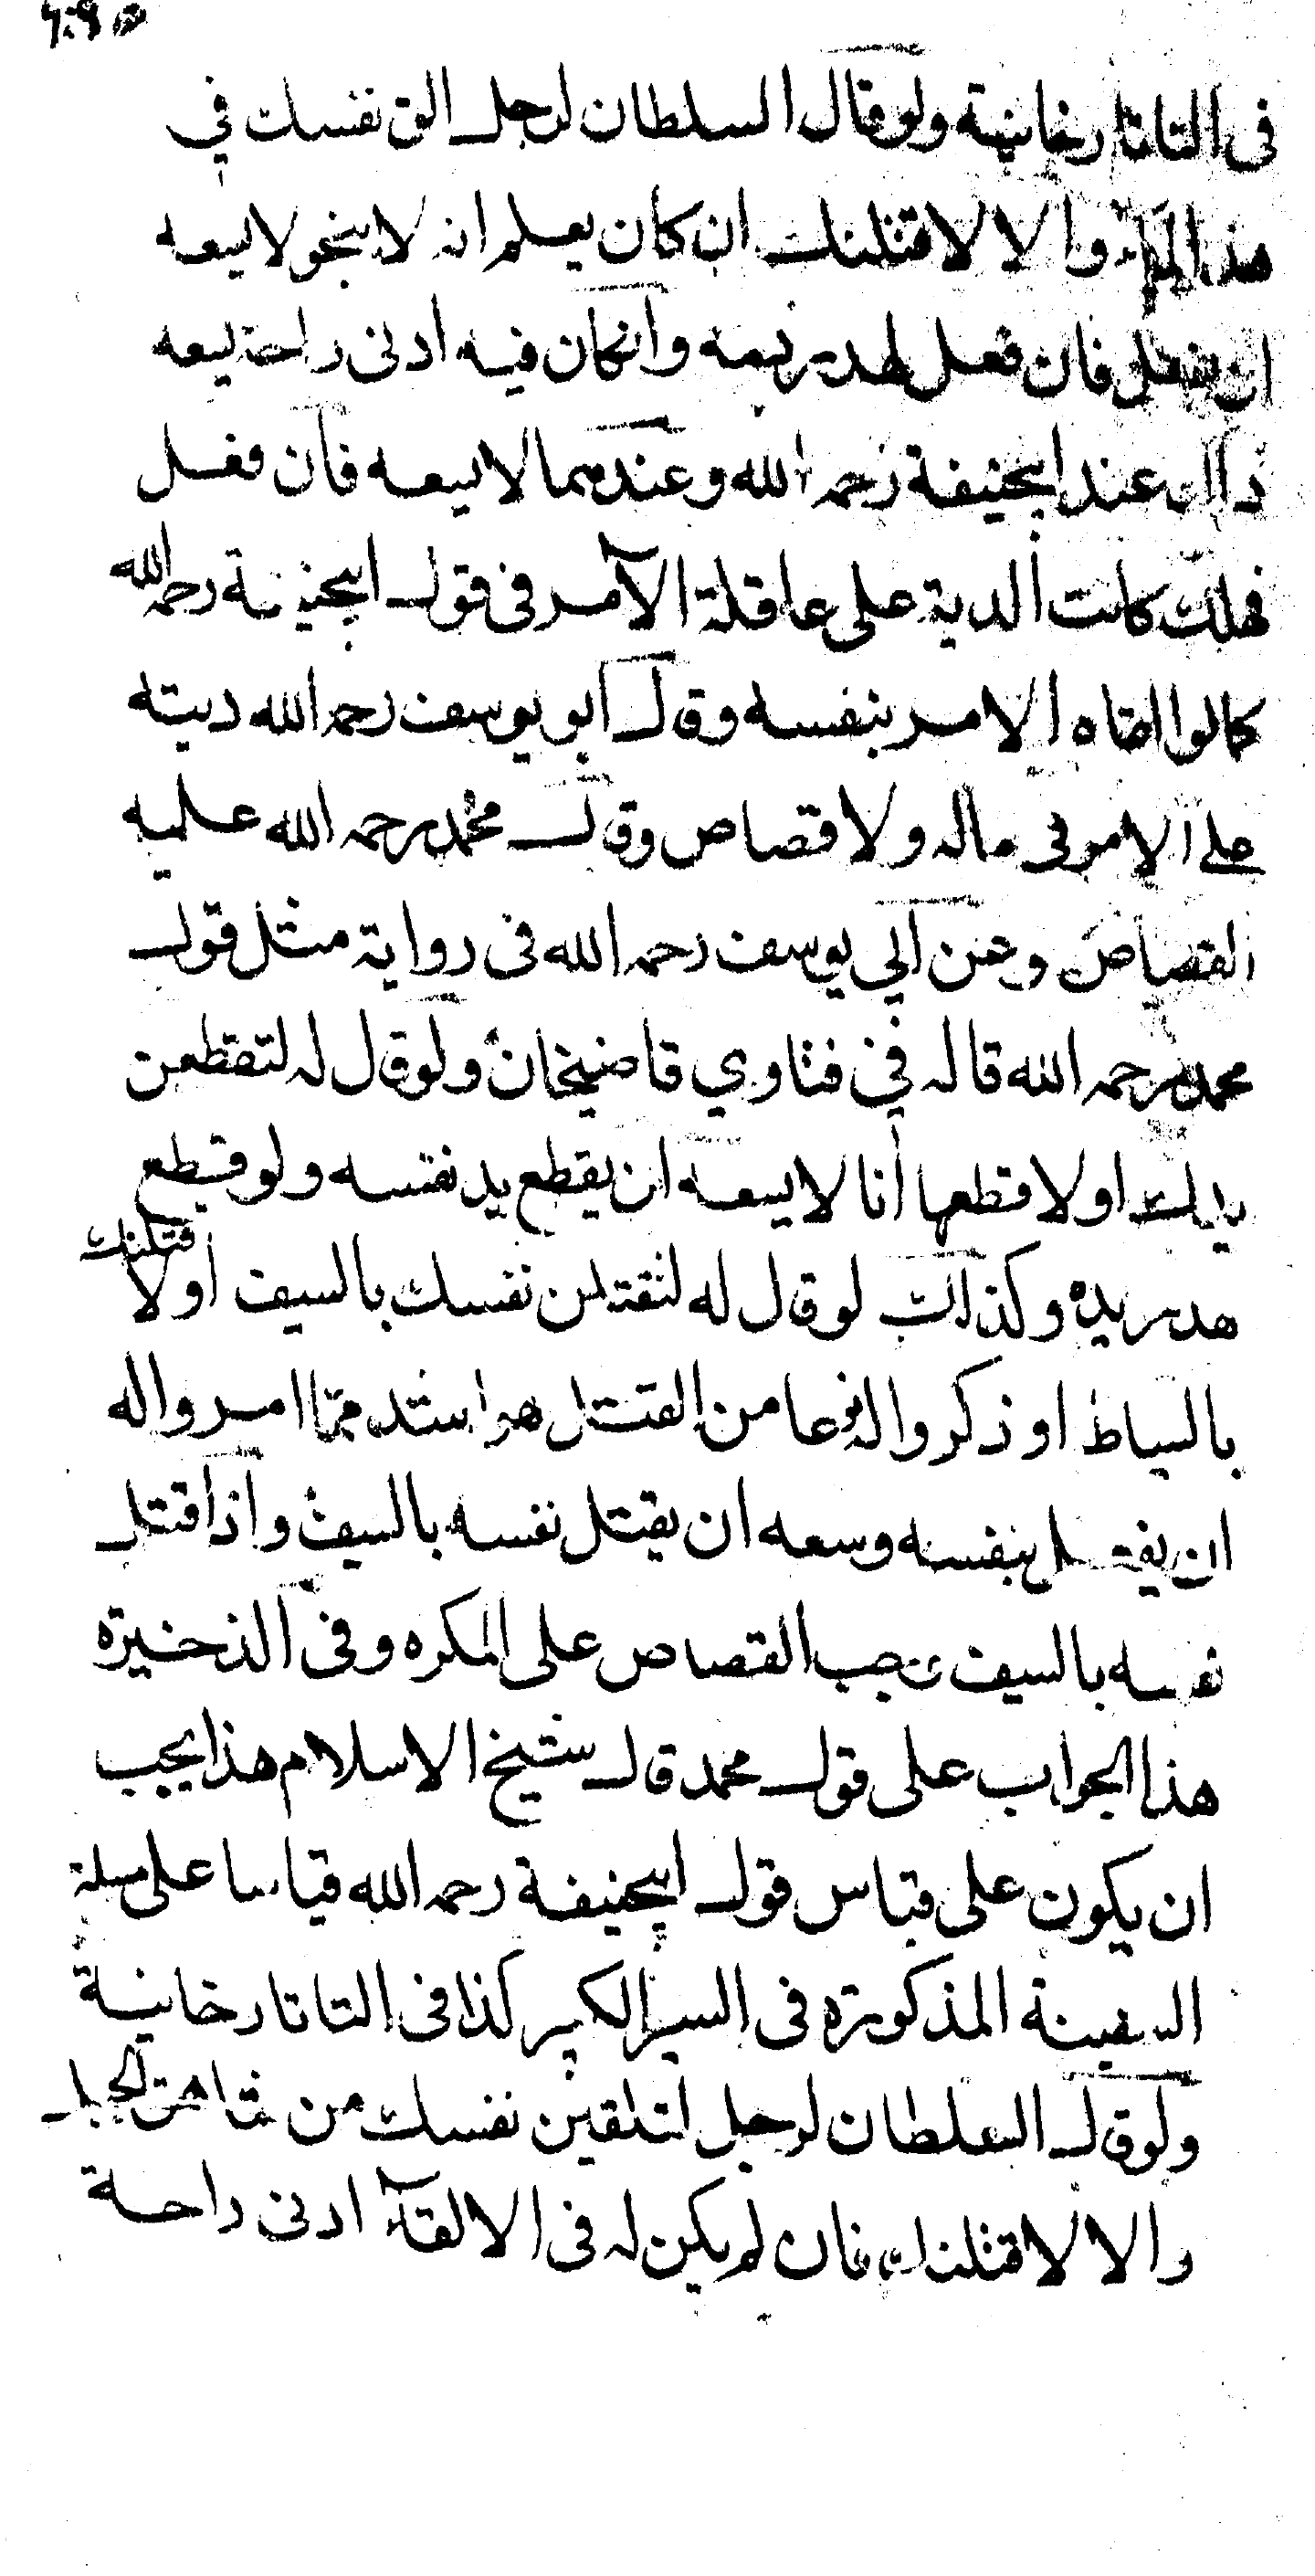 في التاتارخانية ولو قال السلطان لرجل الق نفسك في
هذا الماء والا لاقتلنك ان كان يعلم انه لا ينجو لا يسعه
ان يفعل فان فعل هدر دمه وانكان فيه ادنى راحة يسعه
ذلك عند ابيحنيفة رحمه الله وعندهما لا يسعه فان فعل
فهلك كانت الدية على عاقلة الآمر في قول ابيحنيفة رحمه الله
كما لو القاه الامر بنفسه وقال ابو يوسف رحمه الله ديته
على الامر في ماله ولا قصاص وقال محمد رحمه الله عليه
القصاص وعن ابي يوسف رحمه الله في رواية مثل قول
محمد رحمه الله قاله في فتاوي قاضيخان ولو قال له لتقطعن
يدك او لاقطعها أنا لا يسعه ان يقطع يد نفسه ولو قطع
هدر يده وكذلك لو قال له لتقتلن نفسك بالسيف أو لاقتلنك
بالسياط او ذكر واله نوعا من القتل هو اشد مما امر واله
ان يفعل بنفسه وسعه ان يقتل نفسه بالسيف واذا قتل
نفسه بالسيف يجب القصاص على المكره وفي الذخيرة
هذا الجواب على قول محمد قال شيخ الاسلام هذا يجب
ان يكون على قياس قول ابيحنيفة رحمه الله قياسا على مسلة
السفينة المذكورة في السير الكبير كذا في التاتارخانية
ولو قال السلطان لرجل لتلقين نفسك من شاهق الجبل
والا لاقتلنك فان لم يكن له في الالقآء ادنى راحة